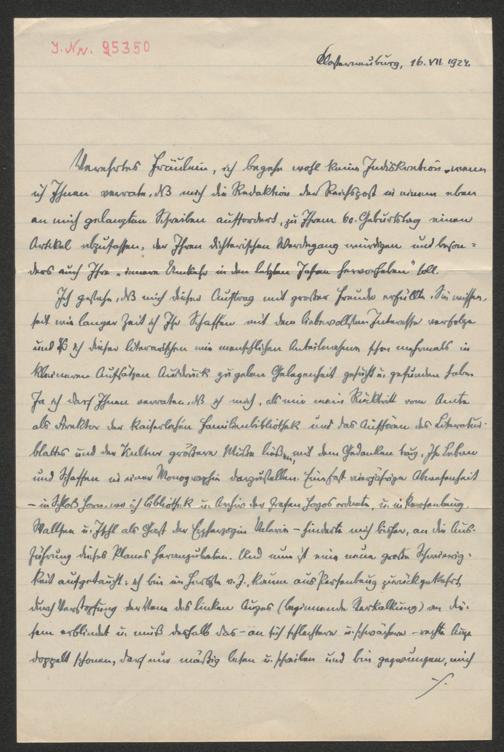 J. Nr. 95350
Klosterneuburg, 16. VII. 1924.
Verehrtes Fräulein, ich begehe wohl keine Indiskretion, wenn
ich Ihnen verrate, daß mich die Redaktion der Reichspost in einem eben
an mich gelangten Schreiben auffordert, zu Ihrem 60. Geburtstag einen
Artikel abzufassen, der Ihren dichterischen Werdegang würdigen und beson-
ders auch Ihre „innere Umkehr in den letzten Jahren hervorheben" soll.
Ich gestehe, daß mich dieser Auftrag mit großer Freude erfüllte. Sie wissen,
seit wie langer Zeit ich Ihr Schaffen mit dem liebevollsten Interesse verfolge
und daß ich dieser literarischen wie menschlichen Anteilnahme schon mehrmals in
kleineren Aufsätzen Ausdruck zu geben Gelegenheit gesucht u. gefunden habe.
Ja ich darf Ihnen verraten, daß ich mich, als mir mein Rücktritt vom Amte
als Direktor der kaiserlichen Familienbibliothek und das Aufhören des Literatur-
blattes und der Kultur größere Muße ließen, mit dem Gedanken trug, Ihr Leben
und Schaffen in einer Monographie darzustellen. Eine fast einjährige Abwesenheit
– in Schloß Horn, wo ich Bibliothek u. Archiv der Grafen Hoyos ordnete, u. in Persenbeug,
Wallsee u. Ischl als Gast der Erzherzogin Valerie – hinderte mich bisher, an die Aus-
führung dieses Planes heranzutreten. Und nun ist eine neue große Schwierig-
keit aufgetaucht: ich bin im Herbste v. J., kaum aus Persenbeug zurückgekehrt,
durch Verstopfung der Vene des linken Auges (beginnende Verkalkung) an die-
sem erblindet u. muß deshalb das – an sich schlechtere u. schwächere – rechte Auge
doppelt schonen, darf nur mäßig lesen u. schreiben und bin gezwungen, mich